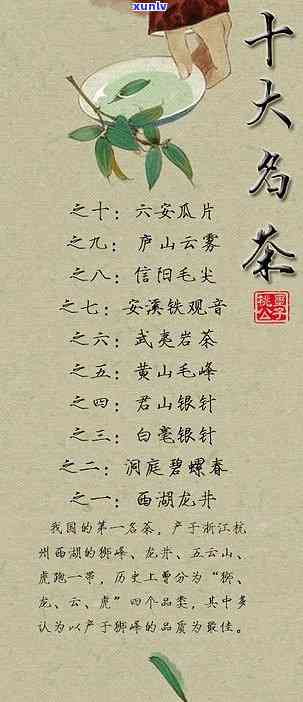 xunlv
十大名茶
桃公墨子
之十：六安瓜片
之九：庐山云雾
之八：信阳毛尖
之七：安溪铁观音
之六：武夷岩茶
之五：黄山毛峰
之四：君山银针
之三：白毫银针
之二：洞庭碧螺春
之一：西湖龙井
我国的第一名茶，产于浙江杭
州西湖的狮峰、龙井、五云山、
虎跑一带，历史上曾分为“狮、
龙、云、虎”四个品类，其中多
认为以产于狮峰的品质为最佳。